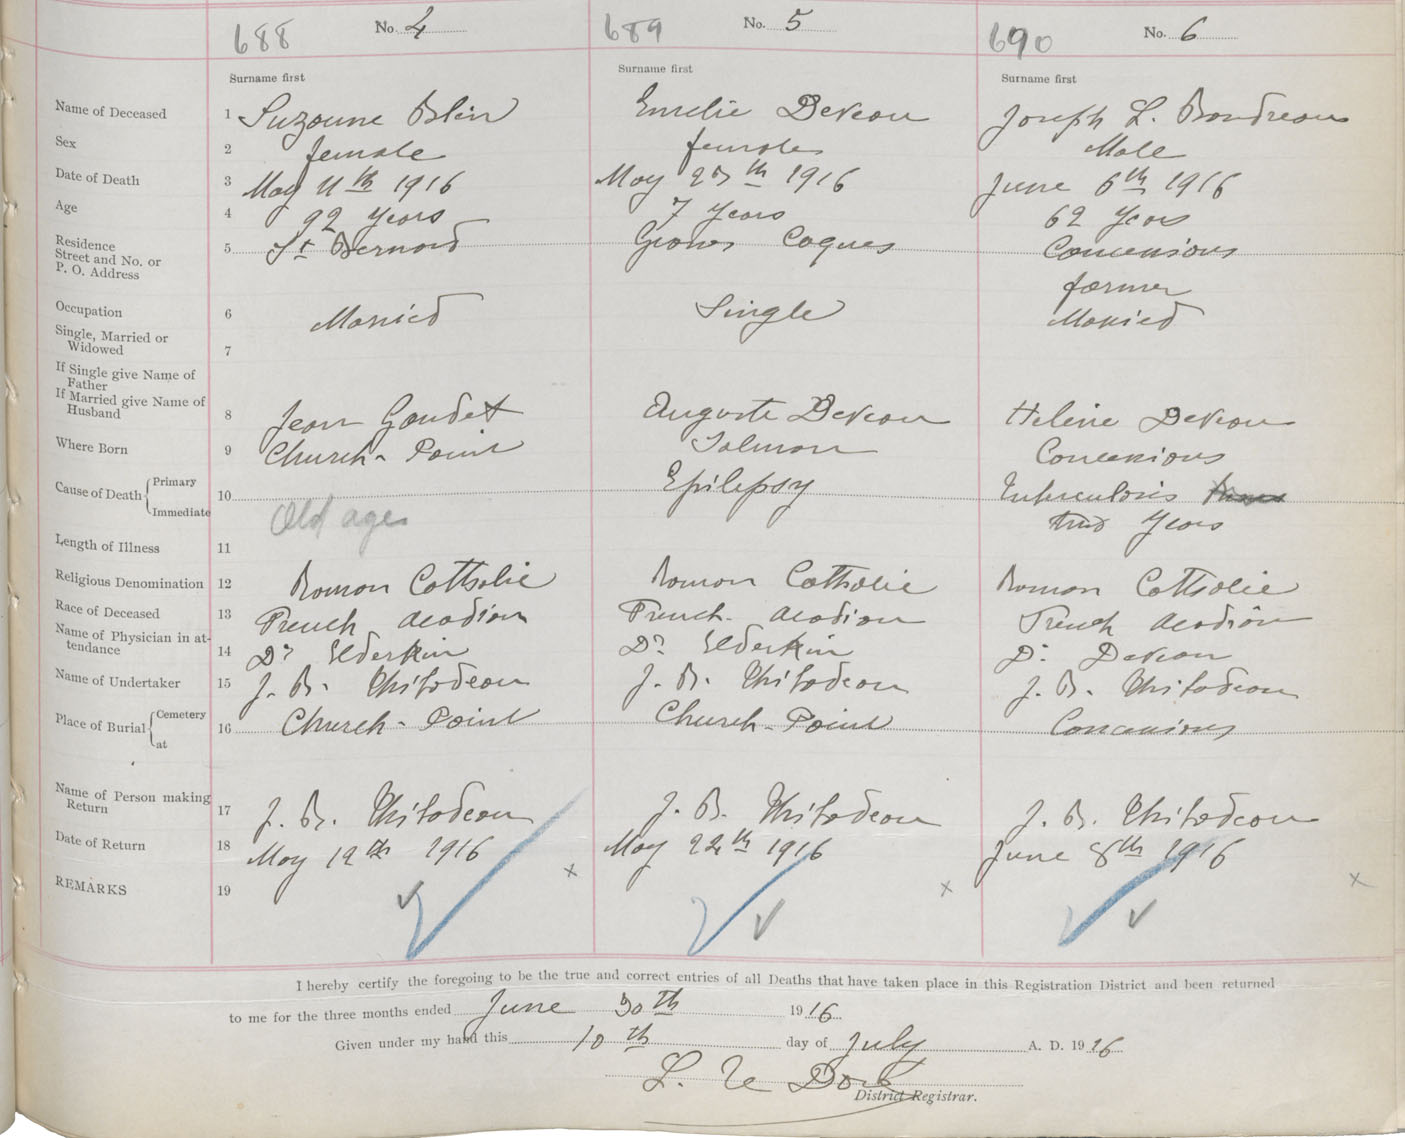 688 No. 4 689 No. 5 690 No. 6
Surname first Surname first Surname first
Name of Deceased 1 Suzanne Blin Emelie Deveau Joseph L. Boudreau
Sex 2 female female Male
Date of Death 3 May 11th 1916 May 20th 1916 June 6th 1916
Age 4 92 years 7 years 62 years
Residence Street and No. or P. O. Address 5 St Bernard Grosses Coques Concessions
Occupation 6 farmer
Single, Married or Widowed 7 Married Single Married
If Single give Name of Father
If Married give Name of Husband 8 Jean Gaudet Auguste Deveau Helene Deveau
Where Born 9 Church-Point Salmon Concessions
Cause of Death { Primary Immediate 10 Old age Epilepsy Tuberculosis
Length of Illness 11 two years
Religious Denomination 12 Roman Catholic Roman Catholic Roman Catholic
Race of Deceased 13 French Acadian French Acadian French Acadian
Name of Physician in attendance 14 Dr Elderkin Dr Elderkin Dr Deveau
Name of Undertaker 15 J. B. Thibodeau J. B. Thibodeau J. B. Thibodeau
Place of Burial { Cemetery at 16 Church-Point Church-Point Concessions
Name of Person making Return 17 J. B. Thibodeau J. B. Thibodeau J. B. Thibodeau
Date of Return 18 May 12th 1916 May 22th 1916 June 8th 1916
REMARKS 19
I hereby certify the foregoing to be the true and correct entries of all Deaths that have taken place in this Registration District and been returned
to me for the three months ended June 30th 1916
Given under my hand this 10th day of July A. D. 1916
District Registrar.